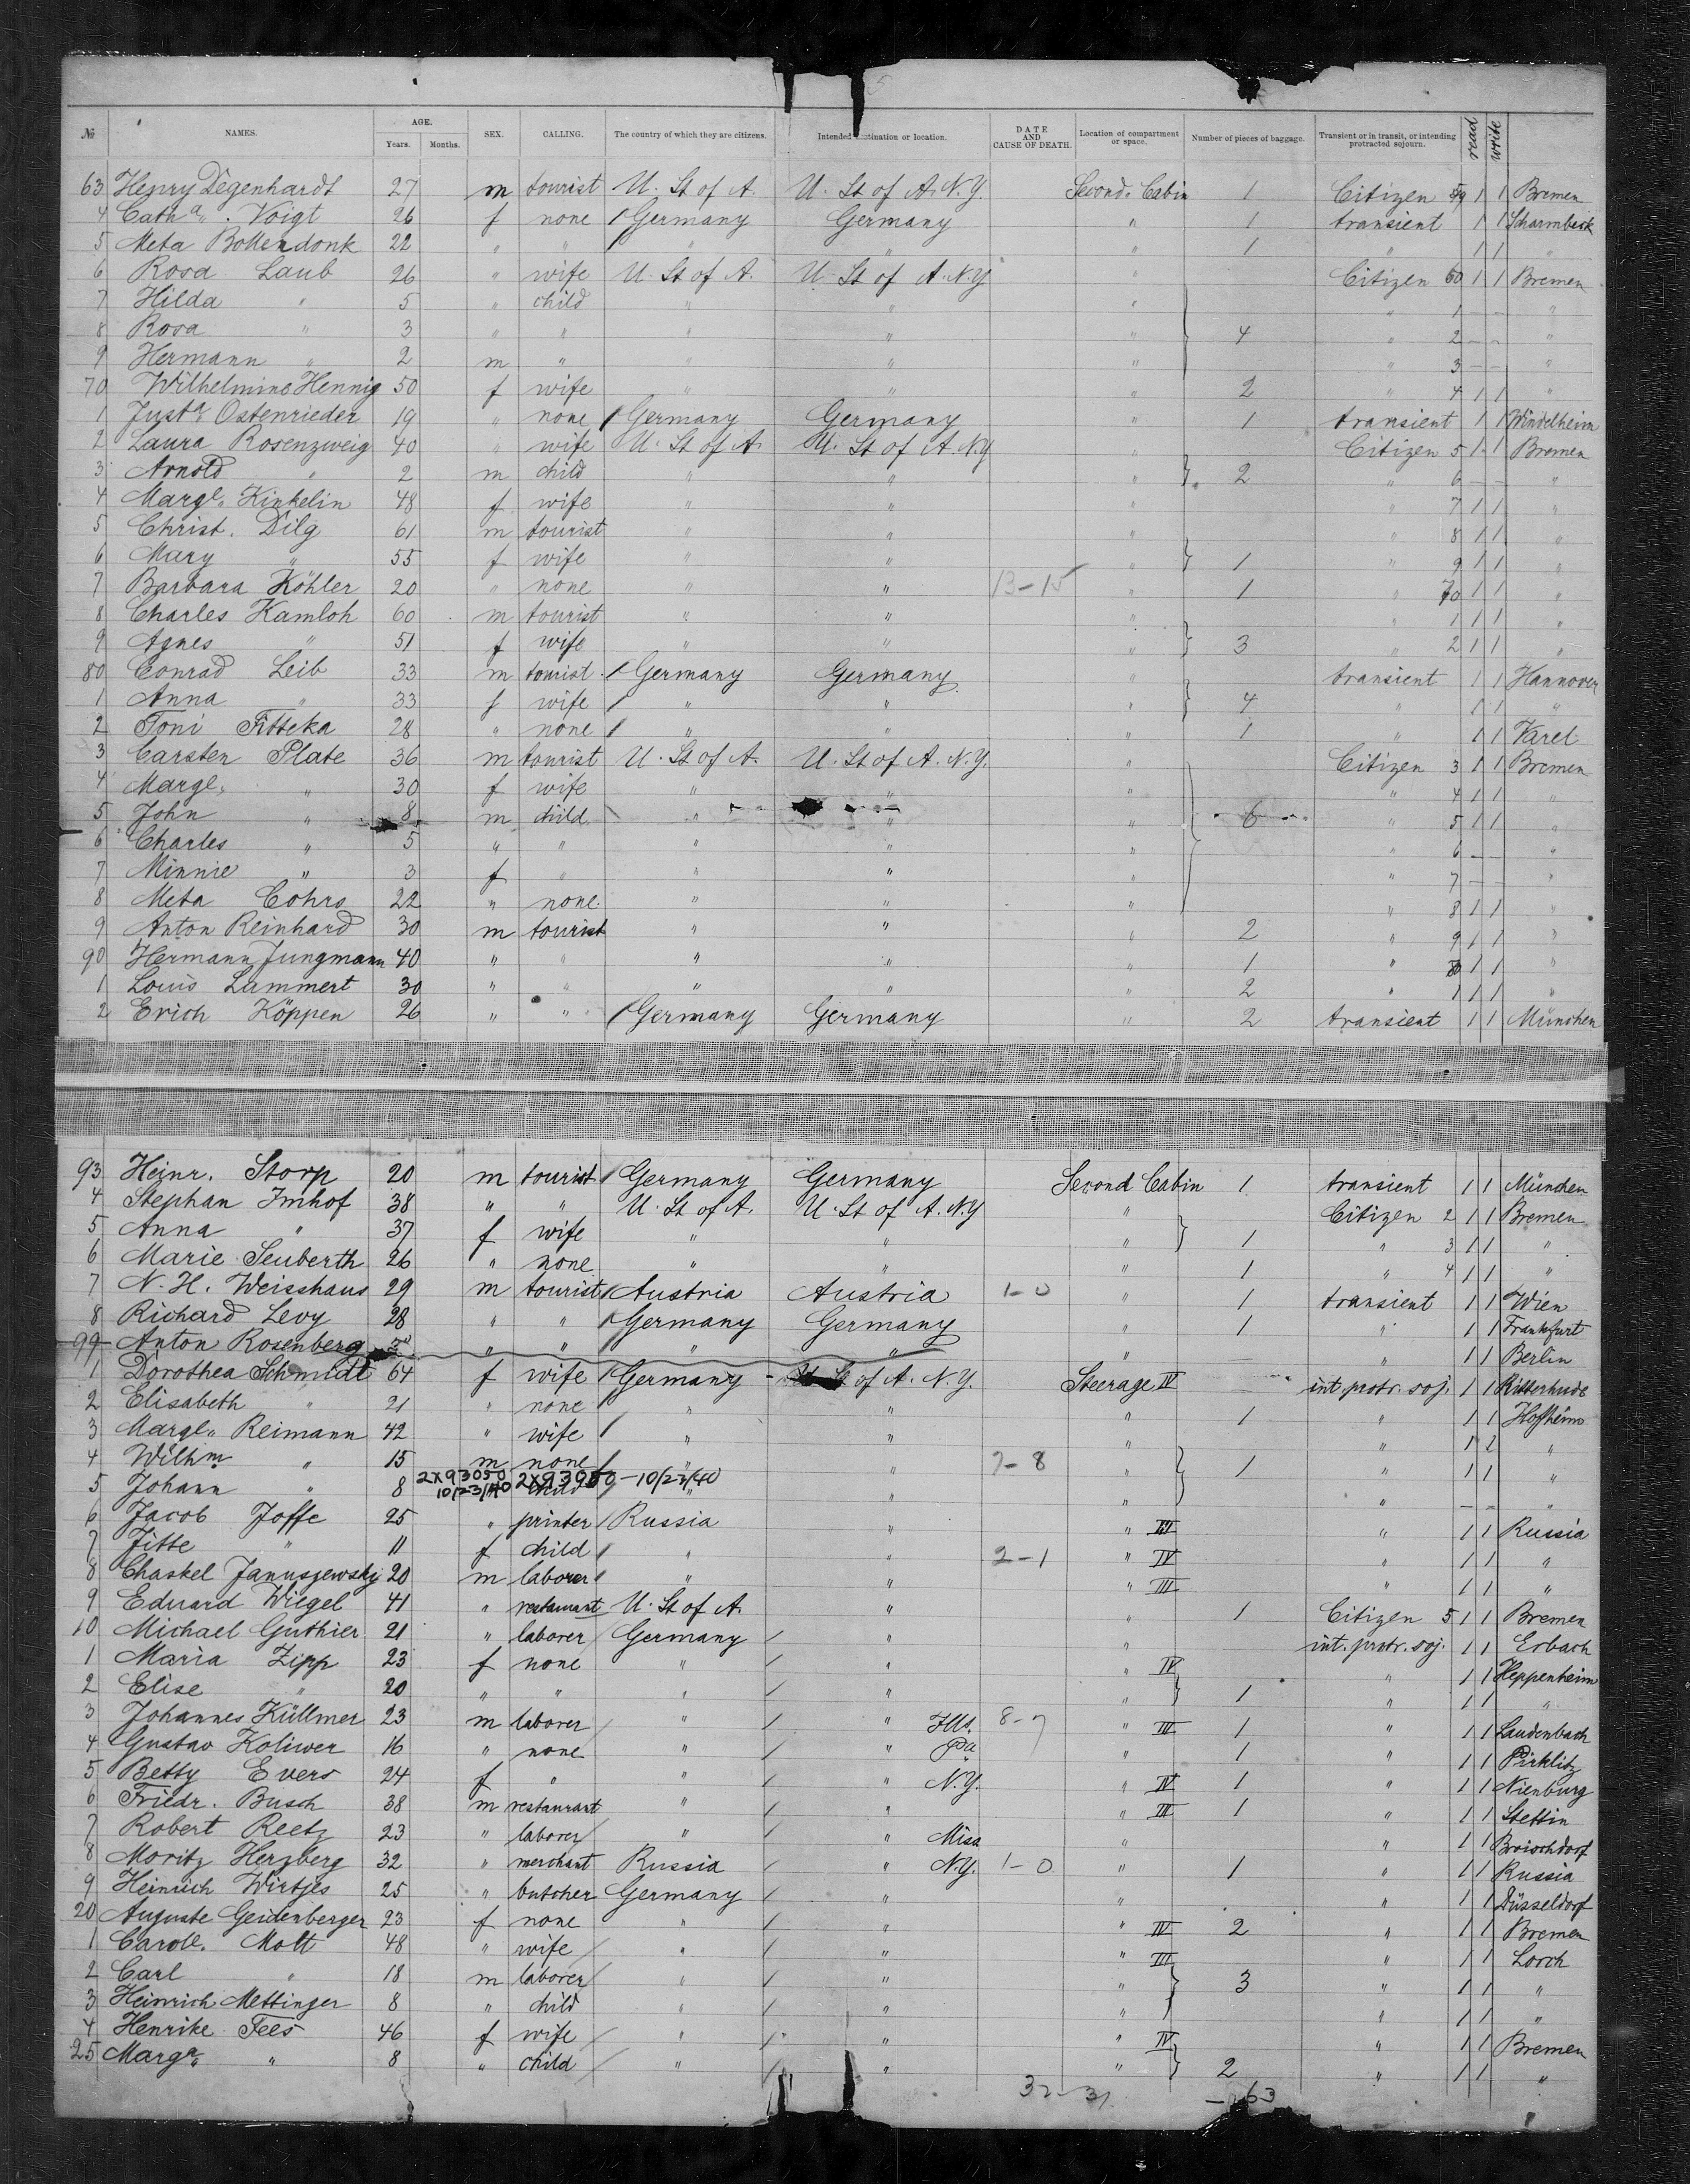 5
№ NAMES. AGE. Years. Months. SEX. CALLING. The country of which they are citizens. Intended destination or location. DATE AND CAUSE OF DEATH. Location of compartment or space. Number of pieces of baggage. Transient or in transit, or intending protracted sojourn. read write
63 Henry Degenhardt 27 m tourist U. St of A. U. St of A. N.Y. Second Cabin 1 Citizen 59 1 1 Bremen
4 Cath a. Voigt 26 f none Germany Germany " 1 transient 1 1 Scharmbeck
5 Meta Bollendonk 22 " " " " " 1 " 1 1 "
6 Rosa Laub 26 " wife U. St of A. U. St of A. N.Y. " Citizen 60 1 1 Bremen
7 Hilda " 5 " child " " " " 1 — — "
8 Rosa " 3 " " " " " 4 " 2 — — "
9 Hermann " 2 m " " " " " 3 — — "
70 Wilhelmine Hennig 50 f wife " " " 2 " 4 1 1 "
1 Just a. Ostenrieder 19 " none Germany Germany " 1 transient 1 1 Windelheim
2 Laura Rosenzweig 40 " wife U. St of A. U. St of A. N.Y. " Citizen 5 1 1 Bremen
3 Arnold " 2 m child " " " 2 " 6 — — "
4 Marg e. Kinkelin 48 f wife " " " " 7 1 1 "
5 Christ. Dilg 61 m tourist " " " " 8 1 1 "
6 Mary " 55 f wife " " " 1 " 9 1 1 "
7 Barbara Köhler 20 " none " " 13-15 " 1 " 70 1 1 "
8 Charles Kamloh 60 m tourist " " " " 1 1 1 "
9 Agnes " 51 f wife " " " 3 " 2 1 1 "
80 Conrad Leib 33 m tourist Germany Germany " transient 1 1 Hannover
1 Anna " 33 f wife " " " 4 " 1 1 "
2 Toni Fitteka 28 " none " " " 1 " 1 1 Varel
3 Carsten Plate 36 m tourist U. St of A. U. St of A. N.Y. " Citizen 3 1 1 Bremen
4 Marg e. " 30 f wife " " " " 4 1 1 "
5 John " 8 m child " " " 6 " 5 1 1 "
6 Charles " 5 " " " " " " 6 — — "
7 Minnie " 3 f " " " " " 7 — — "
8 Meta Cohrs 22 " none " " " " 8 1 1 "
9 Anton Reinhard 30 m tourist " " " 2 " 9 1 1 "
90 Hermann Jungmann 40 " " " " " 1 " 80 1 1 "
1 Louis Lammert 30 " " " " " 2 " 1 1 1 "
2 Erich Köppen 26 " " Germany Germany " 2 transient 1 1 München
93 Heinr. Storp 20 m tourist Germany Germany Second Cabin 1 transient 1 1 München
4 Stephan Imhof 38 " " U. St of A. U. St of A. N.Y " Citizen 2 1 1 Bremen
5 Anna " 37 f wife " " " 1 " 3 1 1 "
6 Marie Seuberth 26 " none " " " 1 " 4 1 1 "
7 N. H. Weisshaus 29 m tourist Austria Austria 1-0 " 1 transient 1 1 Wien
8 Richard Levy 28 " " Germany Germany " 1 " 1 1 Frankfurt
99 Anton Rosenberg " " " " " " 1 1 Berlin
1 Dorothea Schmidt 64 f wife Germany U St of A. N.Y. Steerage IV int. protr. soj. 1 1 Ritterhude
2 Elisabeth " 21 " none " " " 1 " 1 1 Hofheim
3 Marg e. Reimann 42 " wife " " " " 1 2 "
4 Wilhm " 15 m none " " 7-8 " 1 " 1 1 "
5 Johann " 8 2X93050 10/23/40 2X93050-10/23/40 child " " " " — — "
6 Jacob Joffe 25 " printer Russia " " III " 1 1 Russia
7 Fitte " 11 f child " " 2-1 " IV " 1 1 "
8 Chaskel Januszewsky 20 m laborer " " " III " 1 1 "
9 Eduard Wiegel 41 " restaurant U. St of A. " " 1 Citizen 5 1 1 Bremen
10 Michael Guthier 21 " laborer Germany " " int. protr. soj. 1 1 Erbach
1 Maria Zipp 23 f none " " " IV " 1 1 Heppenheim
2 Elise " 20 " " " " " 1 " 1 1 "
3 Johannes Küllmer 23 m laborer " " Ills. 8-7 " III 1 " 1 1 Laudenbach
4 Gustav Koliwer 16 " none " " Pa " 1 " 1 1 Pirklitz
5 Betty Evers 24 f " " " N.Y. " IV 1 " 1 1 Nienburg
6 Friedr. Busch 38 m restaurant " " " III 1 " 1 1 Stettin
7 Robert Reetz 23 " laborer " " Misa " " 1 1
8 Moritz Herzberg 32 " merchant Russia " N.Y. 1-0 " 1 " 1 1 Russia
9 Heinrich Wirtjes 25 " butcher Germany " " " 1 1 Düsseldorf
20 Auguste Geidenberger 23 f none " " " IV 2 " 1 1 Bremen
1 Caroll. Molt 48 " wife " " " III " 1 1 Lorch
2 Carl " 18 m laborer " " " 3 " 1 1 "
3 Heinrich Mettinger 8 " child " " " " 1 1 "
4 Henrike Fees 46 f wife " " " IV " 1 1 Bremen
25 Marg a. " 8 " child " " " 2 " 1 1 "
32-31 63